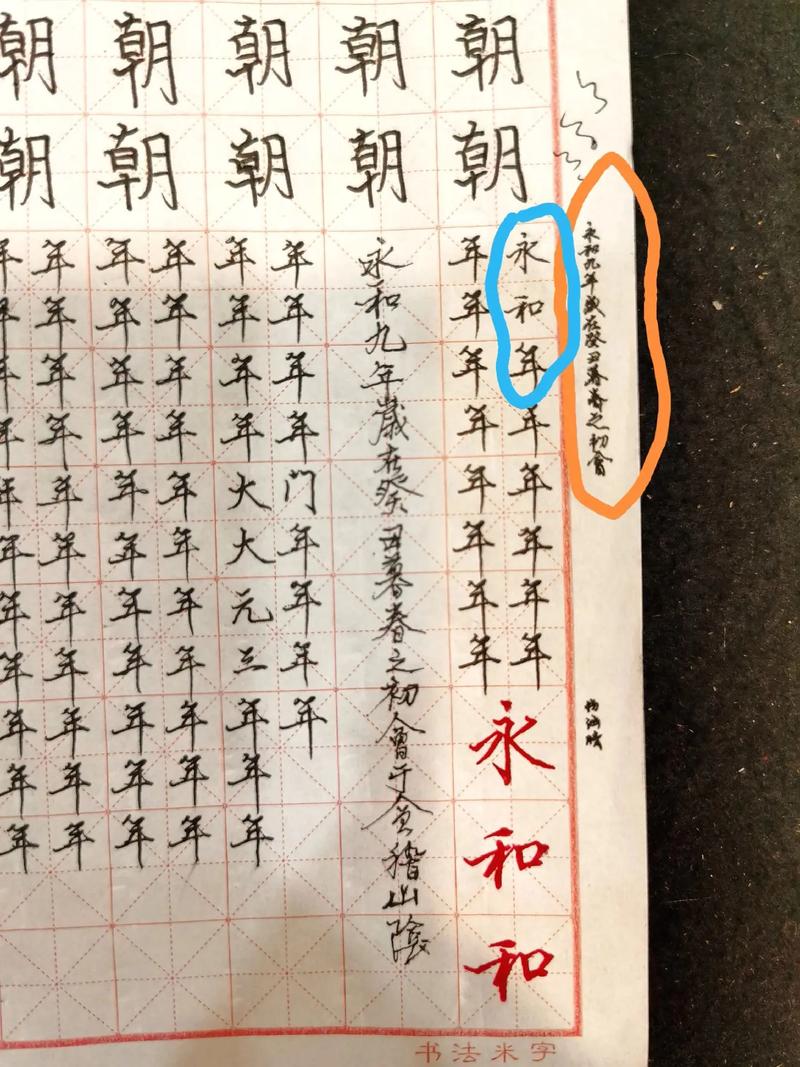 朝朝朝朝朝
朝朝朝朝朝
永和九年歲在癸丑暮春之初會
永和年年年年年年
年年年年年年年年
永和和
永和九年歲在癸丑暮春之初會于會稽山陰
年年年年门年年年年
年年年年大大元三年年年
年年年年年年年年年年年
年年年年年年年年年年年
年年年年年年年年年年年
年年年年年年年年年年年
书法米字